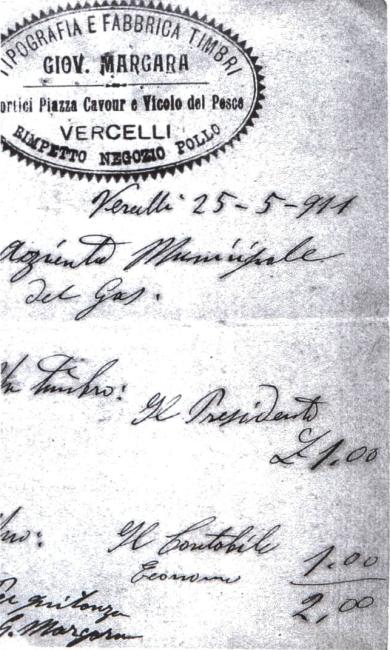 TIPOGRAFIA E FABBRICA TIMBRI
GIOV. MARGARA
ortici Piazza Cavour e Vicolo del Pesce
VERCELLI
RIMPETTO NEGOZIO POLLO
Vercelli 25-5-911
Municipale
del Gas.
Timbro:
Il Presidente
£ 1.00
bro:
Il Contabile
Econom
1.00
2,00
quitanza
G. Margara